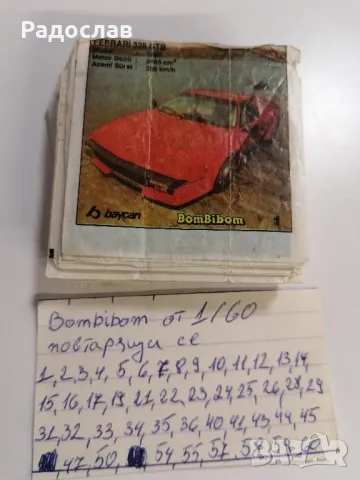 Радослав
FERRARI 328 GTB
Motor Gücü : cm³
Azami Sürat : km/h
baycan
BomBibom
1
Bombibom от 1/60
повтарящи се
1, 2, 3, 4, 5, 6, 7, 8, 9, 10, 11, 12, 13, 14
15, 16, 17, 19, 21, 22, 23, 24, 25, 26, 28, 29
31, 32, 33, 34, 35, 36, 40, 41, 43, 44, 45
47, 50, 54, 55, 57, 58, 59, 60
bazar